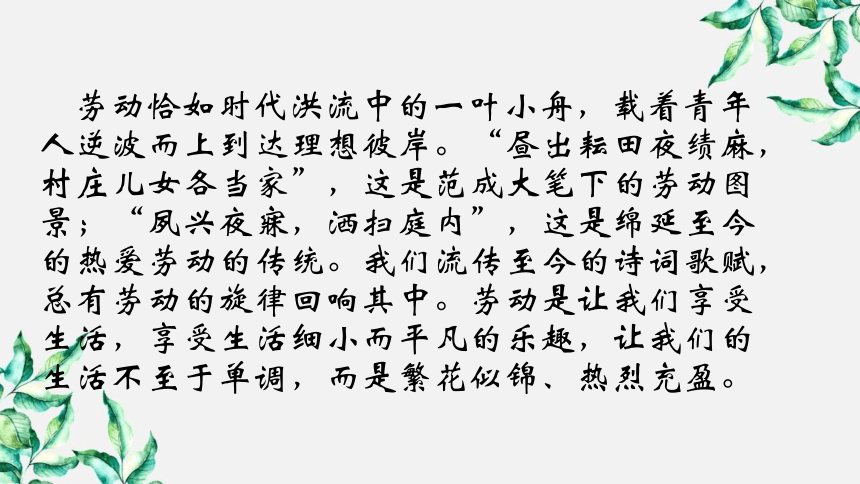 劳动恰如时代洪流中的一叶小舟，载着青年
人逆波而上到达理想彼岸。“昼出耘田夜绩麻，
村庄儿女各当家”，这是范成大笔下的劳动图
景；“夙兴夜寐，洒扫庭内”，这是绵延至今
的热爱劳动的传统。我们流传至今的诗词歌赋，
总有劳动的旋律回响其中。劳动是让我们享受
生活，享受生活细小而平凡的乐趣，让我们的
生活不至于单调，而是繁花似锦、热烈充盈。